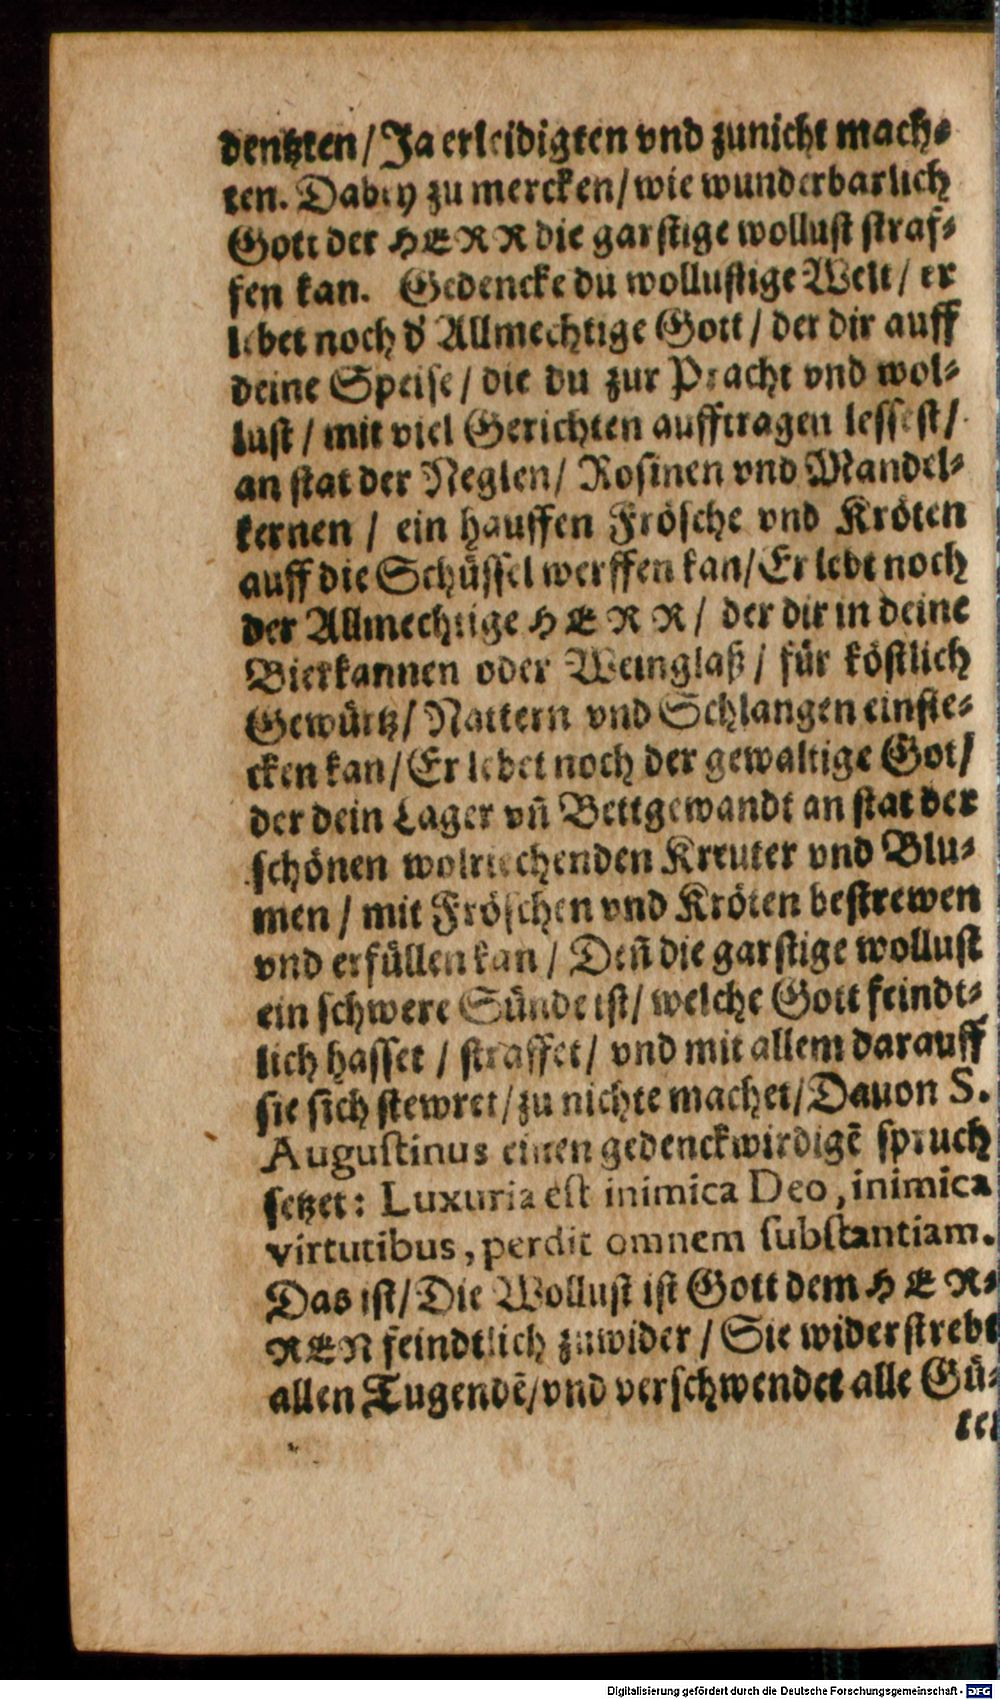 dentzten / Ja erleidigten vnd zunicht mach-
ten. Dabey zu mercken / wie wunderbarlich
Gott der HERR die garstige wollust straf-
fen kan. Gedencke du wollustige Welt / er
lebet noch d' Allmechtige Gott / der dir auff
deine Speise / die du zur Pracht vnd wol-
lust / mit viel Gerichten aufftragen lessest /
an stat der Neglen / Rosinen vnd Mandel-
kernen / ein hauffen Frösche vnd Kröten
auff die Schüssel werffen kan / Er lebt noch
der Allmechtige HERR / der dir in deine
Bierkannen oder Weinglaß / für köstlich
Gewürtz / Nattern vnd Schlangen einste-
cken kan / Er lebet noch der gewaltige Got /
der dein Lager vñ Bettgewandt an stat der
schönen wolriechenden Kreuter vnd Blu-
men / mit Fröschen vnd Kröten bestrewen
vnd erfüllen kan / Deñ die garstige wollust
ein schwere Sünde ist / welche Gott feindt-
lich hasset / straffet / vnd mit allem darauff
sie sich stewret / zu nichte machet / Dauon S.
Augustinus einen gedenckwirdigẽ spruch
setzet: Luxuria est inimica Deo, inimica
virtutibus, perdit omnem substantiam.
Das ist / Die Wollust ist Gott dem HER-
REN feindtlich zuwider / Sie widerstrebt
allen Tugendẽ / vnd verschwendet alle Gü-
ter
Digitalisierung gefördert durch die Deutsche Forschungsgemeinschaft - DFG